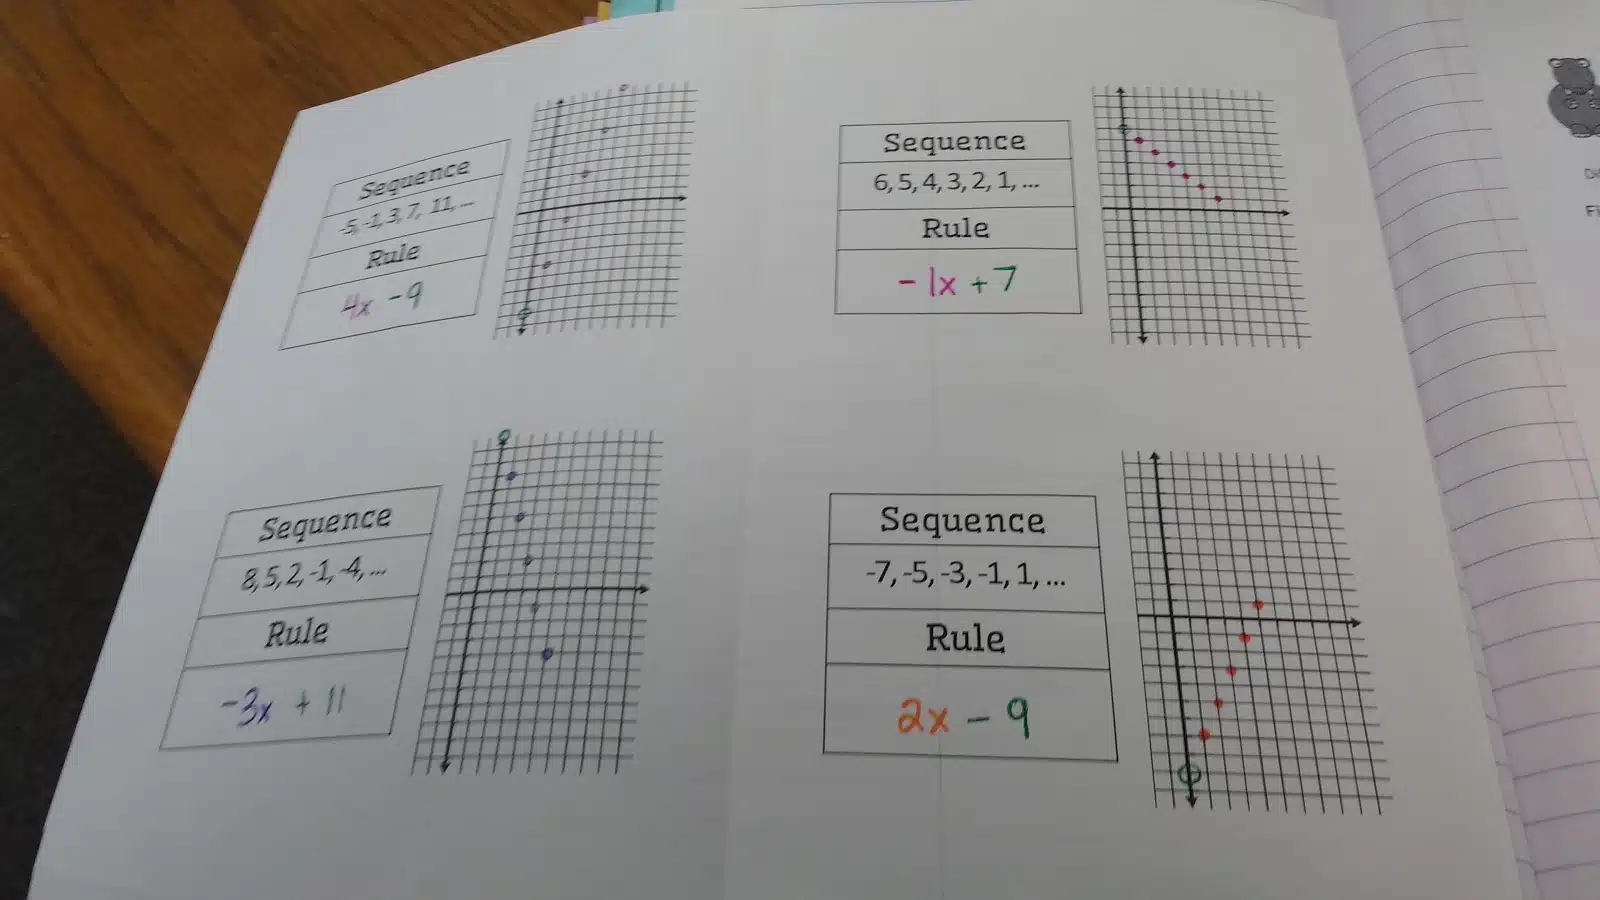 Sequence
-5, -1, 3, 7, 11, ...
Rule
4x - 9
Sequence
6, 5, 4, 3, 2, 1, ...
Rule
- 1x + 7
Sequence
8, 5, 2, -1, -4, ...
Rule
-3x + 11
Sequence
-7, -5, -3, -1, 1, ...
Rule
2x - 9